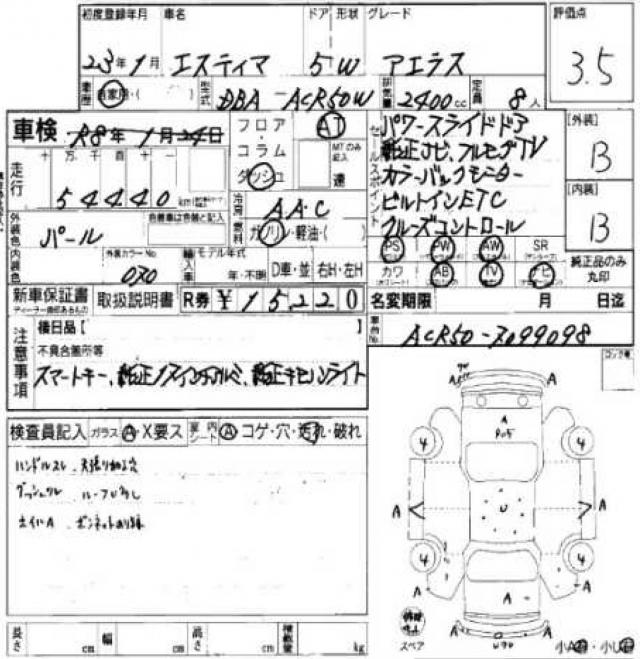 初度登録年月 車名 ドア 形状 グレード 評価点
23年1月 エスティマ 5W アエラス 3.5
車歴 自家用・( ) 型式 DBA-ACR50W 排気量 2400cc 定員 8人
車検 R8年1月24日 フロア・コラム・ダッシュ AT MTのみ記入 速
走行 十万千百十一 54440 km
冷房 AAC
燃料 ガソリン・軽油・( )
セールスポイント
パワースライドドア
純正ナビ、フルセグTV
カラーバックモニター
ビルトインETC
クルーズコントロール
[外装] B
[内装] B
外装色 パール 色替車は色替と記入
内装色 外装カラーNo 070
輸入車 モデル年式 年・不明 D車・並 右H・左H
PS PW AW SR
カワ AB TV ナビ
純正品のみ丸印
新車保証書 取扱説明書 R券 ¥15220
ディーラー捺印あるもの
名変期限 月 日迄
車台No ACR50-7099098
注意事項
後日品【
不具合箇所等
スマートキー、純正17インチアルミ、純正キセノンライト
コーションNo.
検査員記入 ガラス A X要ス 内 A コゲ・穴・汚れ・破れ
ハンドルスレ 天張り
ダッシュ
ホイルA ボンネット
A A A
4 4
A U A
4 4
A A A
スペア
小A 小U
長さ cm 幅 cm 高さ cm 積載量 kg